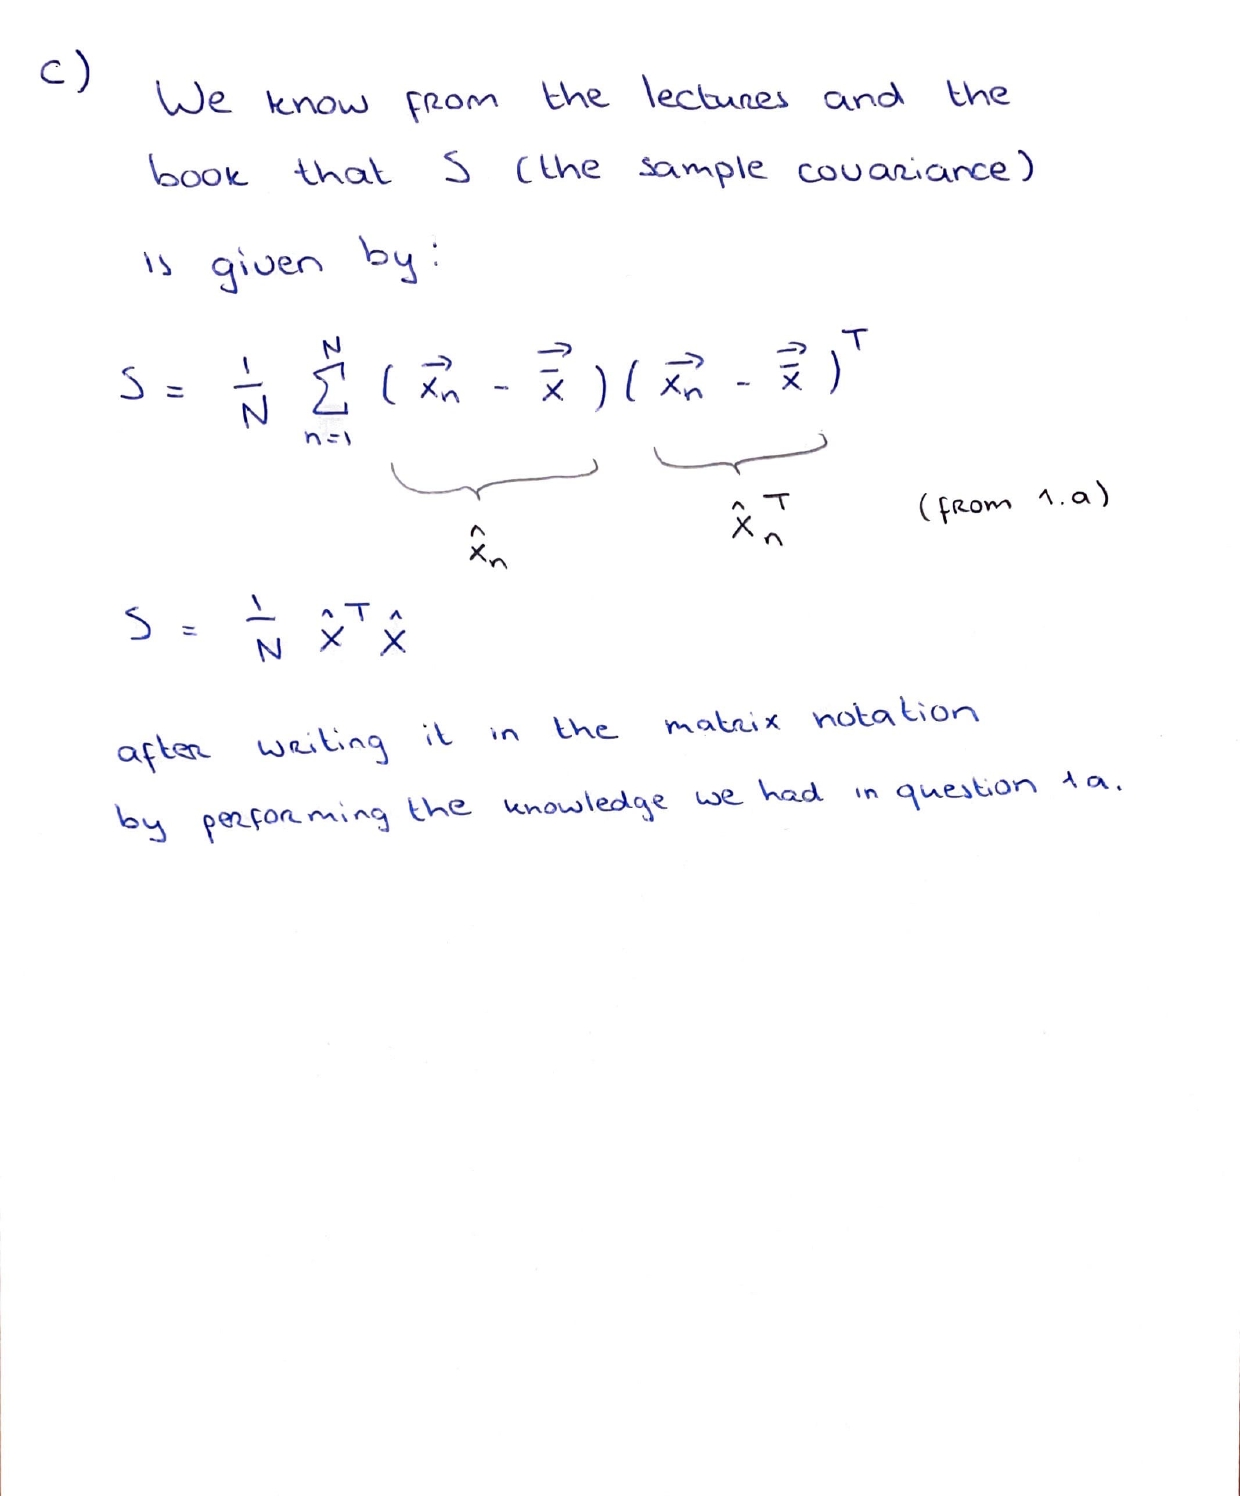 c)
We know from the lectures and the
book that S (the sample covariance)
is given by:
S = 1/N ∑_{n=1}^{N} ( \vec{x_n} - \vec{\bar{x}} ) ( \vec{x_n} - \vec{\bar{x}} )^T
\hat{x}_n \hat{x}_n^T (from 1.a)
S = 1/N \hat{X}^T \hat{X}
after writing it in the matrix notation
by performing the knowledge we had in question 1a.